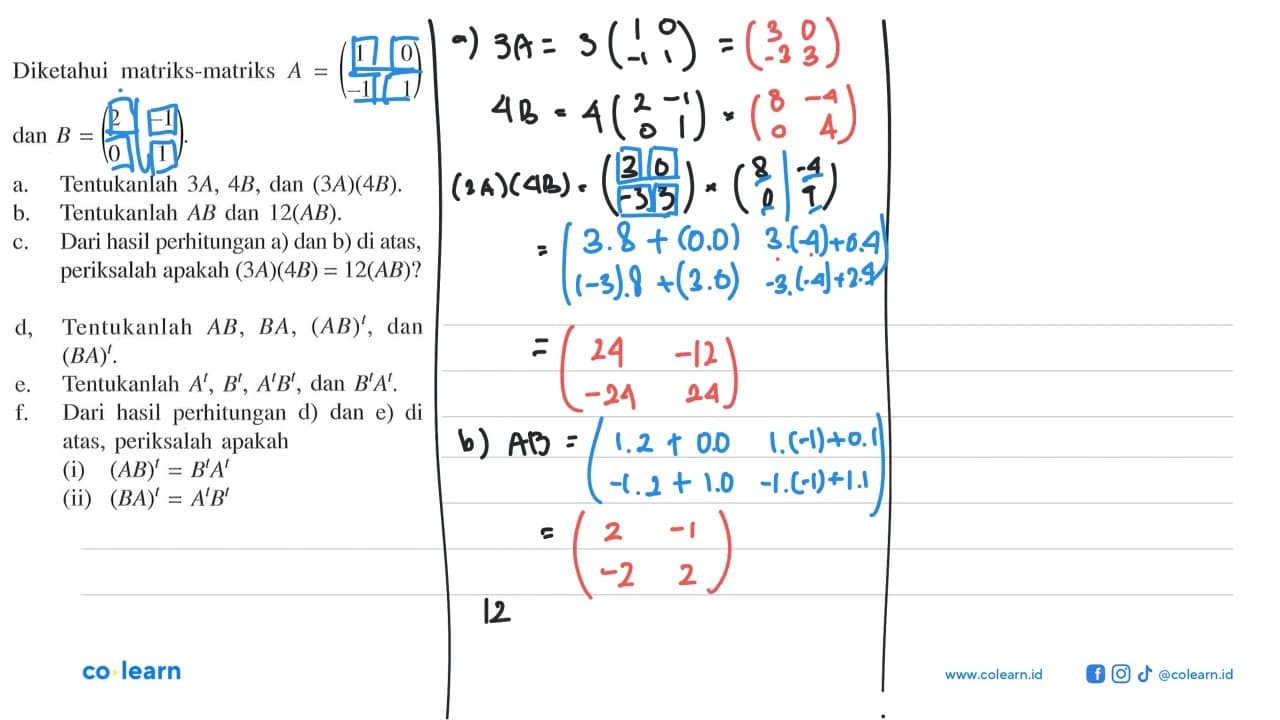 Diketahui matriks-matriks A = (1 0
-1 1)
dan B = (2 -1
0 1).
a. Tentukanlah 3A, 4B, dan (3A)(4B).
b. Tentukanlah AB dan 12(AB).
c. Dari hasil perhitungan a) dan b) di atas,
periksalah apakah (3A)(4B) = 12(AB)?
d, Tentukanlah AB, BA, (AB)ᵗ, dan
(BA)ᵗ.
e. Tentukanlah Aᵗ, Bᵗ, AᵗBᵗ, dan BᵗAᵗ.
f. Dari hasil perhitungan d) dan e) di
atas, periksalah apakah
(i) (AB)ᵗ = BᵗAᵗ
(ii) (BA)ᵗ = AᵗBᵗ
a) 3A = 3 (1 0
-1 1) = (3 0
-3 3)
4B = 4 (2 -1
0 1) = (8 -4
0 4)
(3A)(4B) = (3 0
-3 3) × (8 -4
0 4)
= (3.8 + (0.0) 3.(-4)+0.4
(-3).8 + (3.0) -3.(-4)+3.4)
= (24 -12
-24 24)
b) AB = (1.2 + 0.0 1.(-1)+0.1
-1.2 + 1.0 -1.(-1)+1.1)
= (2 -1
-2 2)
12
co learn
www.colearn.id
@colearn.id